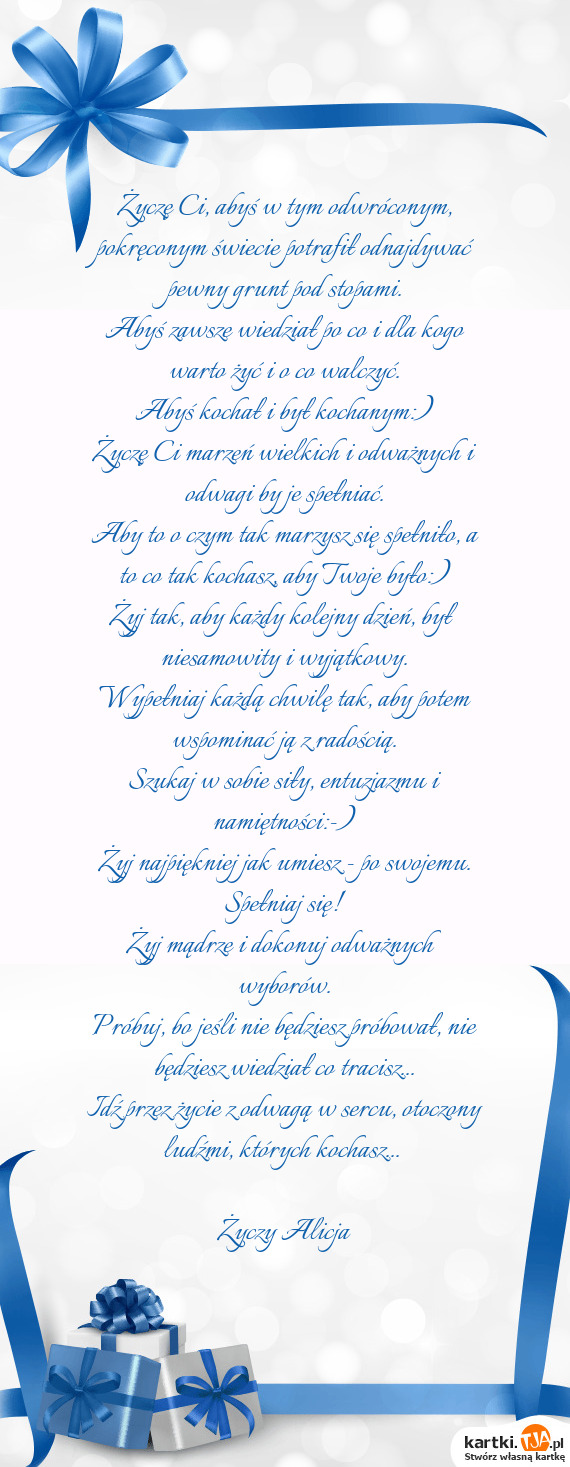 Życzę Ci, abyś w tym odwróconym,
pokręconym świecie potrafił odnajdywać
pewny grunt pod stopami.
Abyś zawsze wiedział po co i dla kogo
warto żyć i o co walczyć.
Abyś kochał i był kochanym:)
Życzę Ci marzeń wielkich i odważnych i
odwagi by je spełniać.
Aby to o czym tak marzysz się spełniło, a
to co tak kochasz, aby Twoje było:)
Żyj tak, aby każdy kolejny dzień, był
niesamowity i wyjątkowy.
Wypełniaj każdą chwilę tak, aby potem
wspominać ją z radością.
Szukaj w sobie siły, entuzjazmu i
namiętności:-)
Żyj najpiękniej jak umiesz - po swojemu.
Spełniaj się!
Żyj mądrze i dokonuj odważnych
wyborów.
Próbuj, bo jeśli nie będziesz próbował, nie
będziesz wiedział co tracisz...
Idź przez życie z odwagą w sercu, otoczony
ludźmi, których kochasz...
Życzy Alicja
kartki.TJA.pl
Stwórz własną kartkę